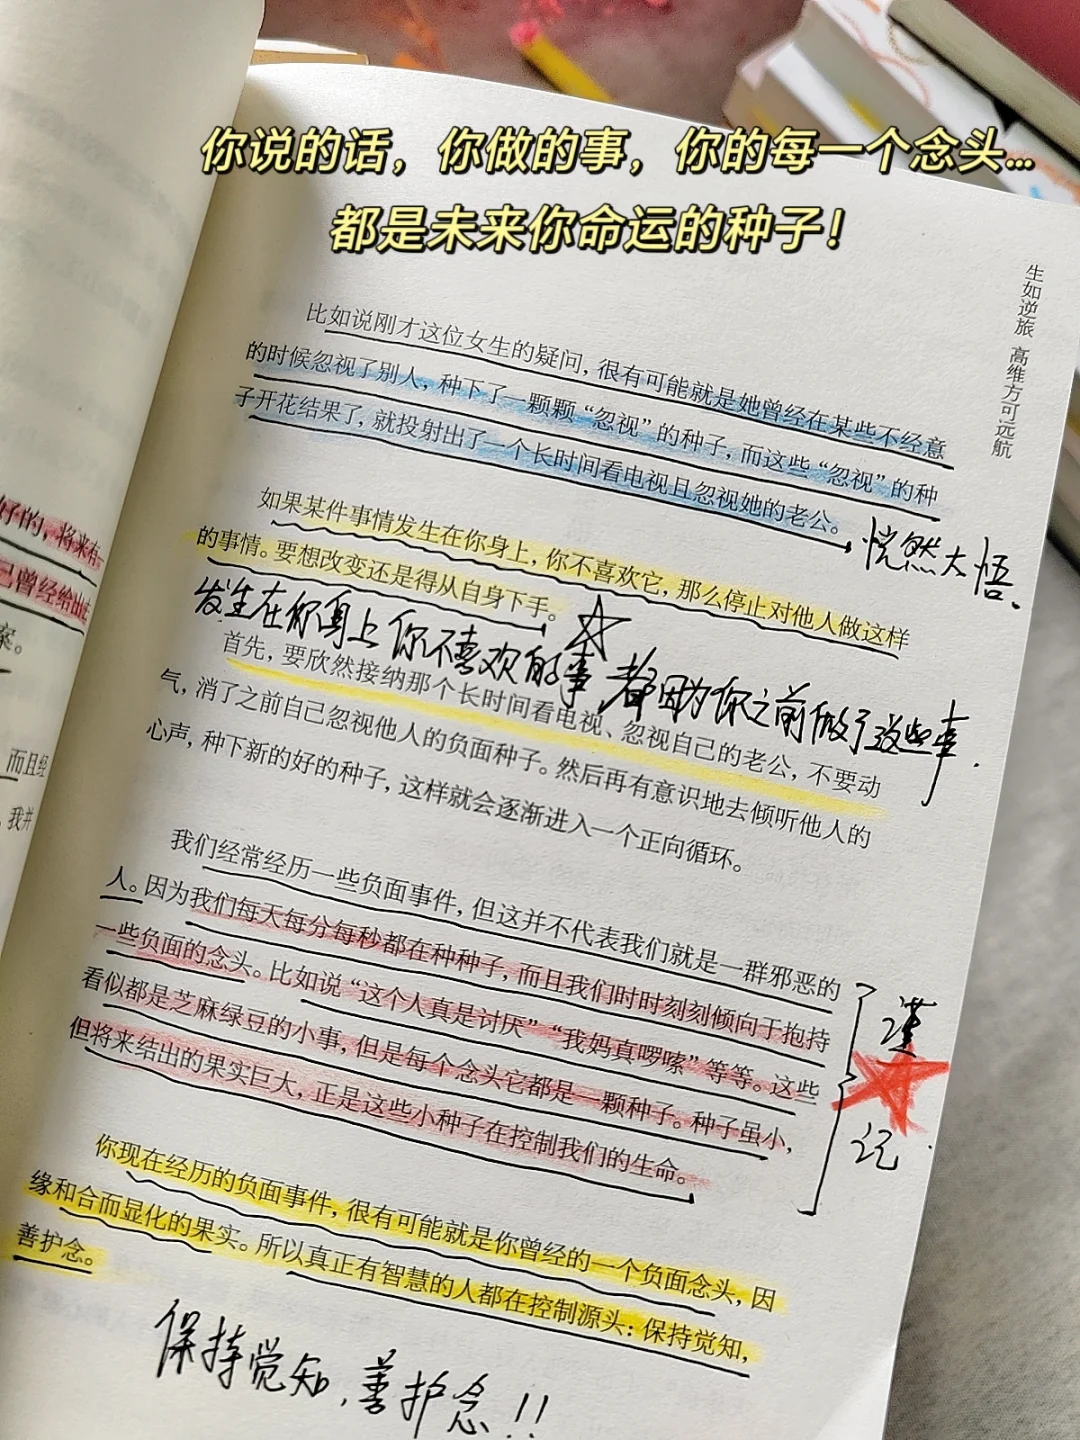 你说的话，你做的事，你的每一个念头…
都是未来你命运的种子！
生如逆旅 高维方可远航
比如说刚才这位女生的疑问，很有可能就是她曾经在某些不经意
的时候忽视了别人，种下了一颗颗“忽视”的种子，而这些“忽视”的种
子开花结果了，就投射出了一个长时间看电视且忽视她的老公。
恍然大悟.
如果某件事情发生在你身上，你不喜欢它，那么停止对他人做这样
的事情。要想改变还是得从自身下手。
发生在你身上你不喜欢的事都因为你之前做了这些事.
首先，要欣然接纳那个长时间看电视、忽视自己的老公，不要动
气，消了之前自己忽视他人的负面种子。然后再有意识地去倾听他人的
心声，种下新的好的种子，这样就会逐渐进入一个正向循环。
我们经常经历一些负面事件，但这并不代表我们就是一群邪恶的
人。因为我们每天每分每秒都在种种子，而且我们时时刻刻倾向于抱持
一些负面的念头。比如说“这个人真是讨厌”“我妈真啰嗦”等等。这些
看似都是芝麻绿豆的小事，但是每个念头它都是一颗种子。种子虽小，
但将来结出的果实巨大，正是这些小种子在控制我们的生命。
谨
记.
你现在经历的负面事件，很有可能就是你曾经的一个负面念头，因
缘和合而显化的果实。所以真正有智慧的人都在控制源头：保持觉知，
善护念。
保持觉知，善护念！！
好的，将来有
己曾经给出去
案。
而且经
我并